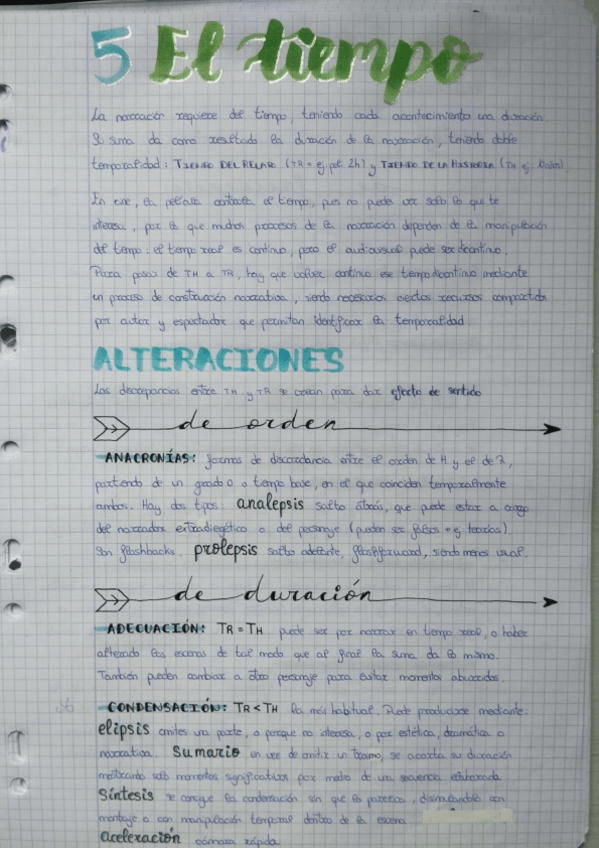 5 El tiempo
La narración requiere del tiempo, teniendo cada acontecimiento una duración.
Su suma da como resultado la duración de la narración, teniendo doble
temporalidad: TIEMPO DEL RELATO (TR = ej. peli 2h) y TIEMPO DE LA HISTORIA (TH ej.
En cine, la película controla el tiempo, pues no puedes ver solo lo que te
interesa, por lo que muchos procesos de la narración dependen de la manipulación
del tiempo: el tiempo real es continuo, pero el audiovisual puede ser discontinuo.
Para pasar de TH a TR, hay que volver continuo ese tiempo discontinuo mediante
un proceso de construcción narrativa, siendo necesarios ciertos recursos compartidos
por autor y espectador que permitan identificar la temporalidad
ALTERACIONES
Las discrepancias entre TH y TR se crean para dar efecto de sentido
de orden
ANACRONÍAS: formas de discordancia entre el orden de H y el de R,
partiendo de un grado 0 o tiempo base, en el que coinciden temporalmente
ambos. Hay dos tipos: analepsis salto atrás, que puede estar a cargo
del narrador extradiegético o del personaje (pueden ser falsos → ej. teorías).
Son flashbacks. prolepsis salto adelante, flashforward, siendo menos usual.
de duración
ADECUACIÓN: TR = TH puede ser por narrar en tiempo real, o haber
alterado las escenas de tal modo que al final la suma da lo mismo.
También pueden cambiar a otro personaje para evitar momentos aburridos.
CONDENSACIÓN: TR < TH la más habitual. Puede producirse mediante:
elipsis omites una parte, o porque no interesa, o por estética, dramática o
narrativa. Sumario en vez de omitir un tramo, se acorta su duración
mostrando solo momentos significativos por medio de una secuencia elaborada
Síntesis se consigue la condensación sin que lo parezca, disimulándola con
montaje o con manipulación temporal dentro de la escena
aceleración cámara rápida